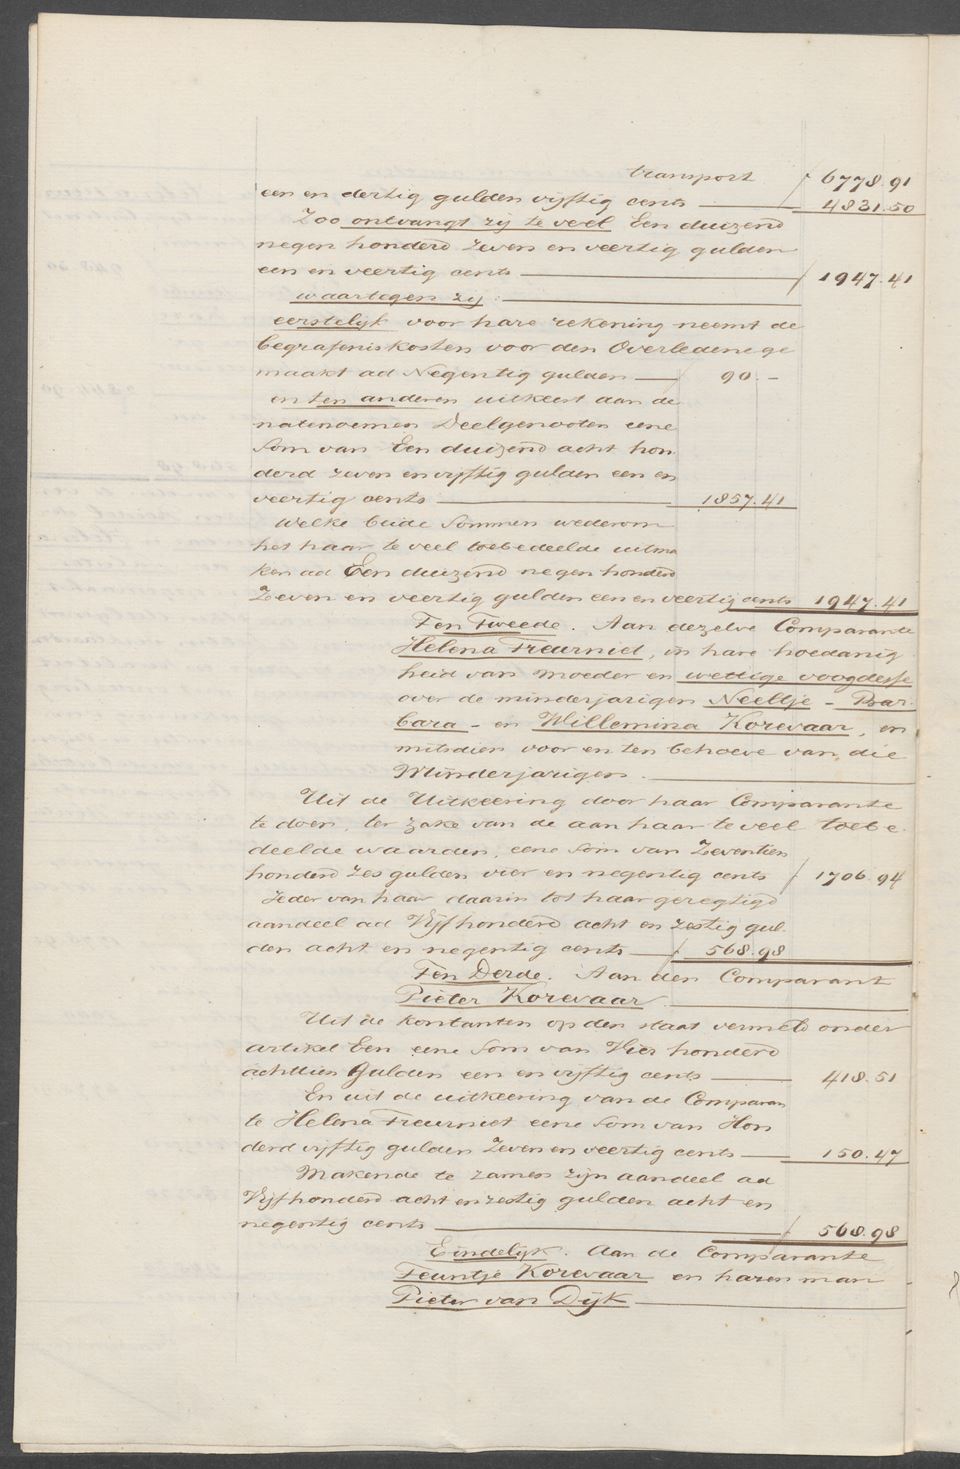 transport f 6778.91
een en dertig gulden vijftig cents — 4831.50
Zoo ontvangt zij te veel Een duizend
negen honderd zeven en veertig gulden
een en veertig cents — f 1947.41
waartegen zij: —
eerstelijk voor hare rekening neemt de
begrafeniskosten voor den Overledene ge
maakt ad Negentig gulden — f 90.-
en ten anderen uitkeert aan de
natenoemen Deelgenooten eene
Som van Een duizend acht hon
derd zeven en vijftig gulden een en
veertig cents — 1857.41
welke beide Sommen wederom
het haar te veel toebedeelde uitma
ken ad Een duizend negen honderd
Zeven en veertig gulden een en veertig cents 1947.41
Ten Tweede. Aan dezelve Comparante
Helena Treurniet, in hare hoedanig
heid van Moeder en wettige voogdesse
over de minderjarigen Neeltje - Bar-
bara - en Willemina Korevaar, en
mitsdien voor en ten behoeve van die
Minderjarigen. —
Uit de Uitkeering door haar Comparante
te doen, ter zake van de aan haar te veel toebe
deelde waarden, eene Som van Zeventien
honderd zes gulden vier en negentig cents f 1706.94
Ieder van haar daarin tot haar geregtigd
aandeel ad Vijfhonderd acht en zestig gul
den acht en negentig cents — f 568.98
Ten Derde. Aan den Comparant
Pieter Korevaar —
Uit de kontanten op den staat vermeld onder
artikel Een eene Som van Vier honderd
achttien Gulden een en vijftig cents — 418.51
En uit de uitkeering van de Comparan
te Helena Treurniet eene Som van Hon
derd vijftig gulden Zeven en veertig cents — 150.47
Makende te zamen zijn aandeel ad
Vijfhonderd acht en zestig gulden acht en
negentig cents — f 568.98
Eindelijk. Aan de Comparante
Teuntje Korevaar en haren man
Pieter van Dijk —